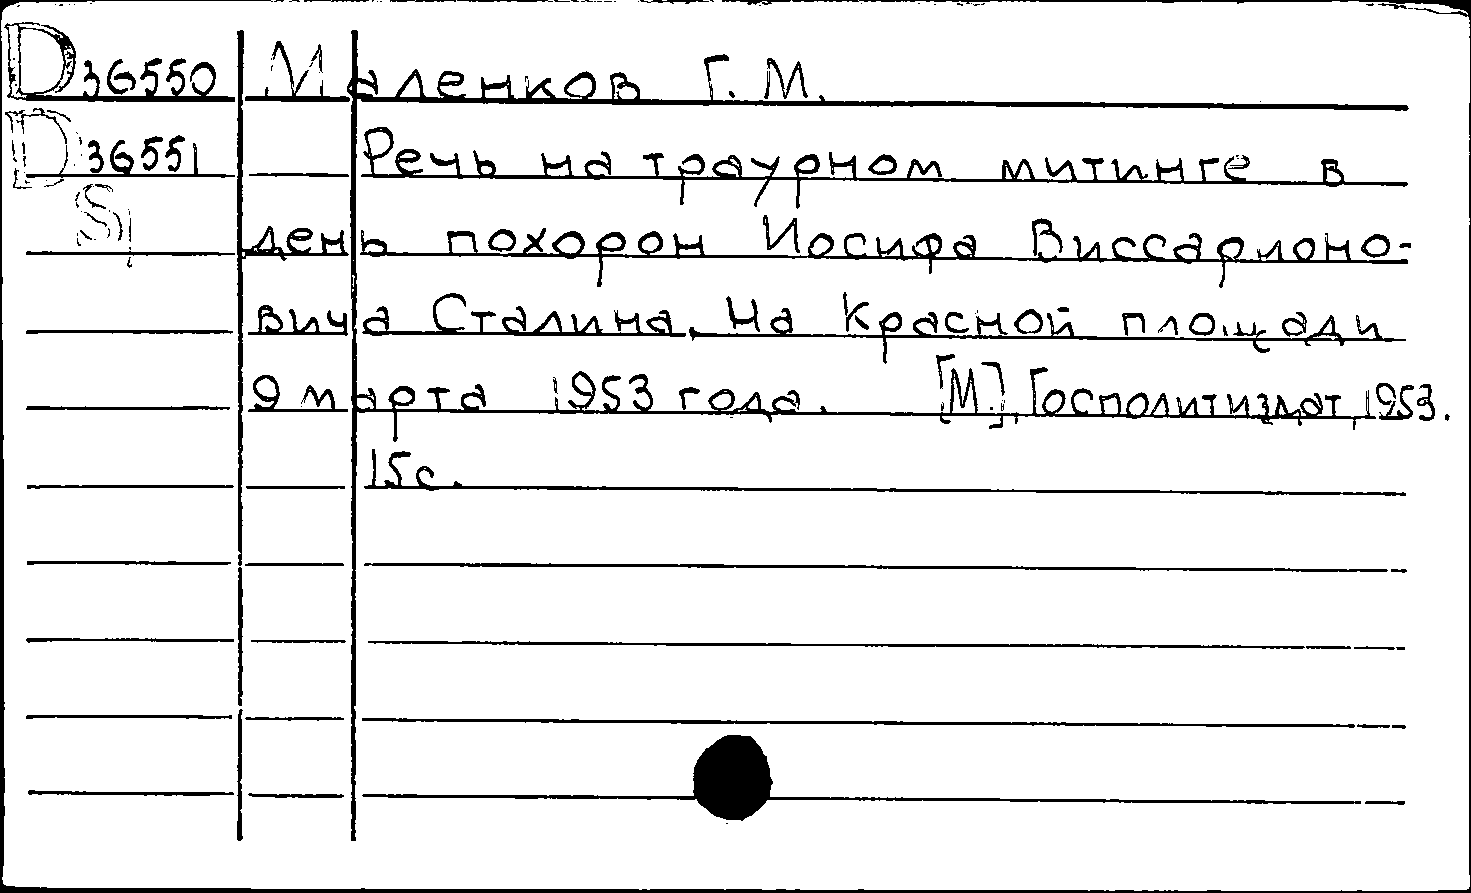 D 36550 Маленков Г. М.
D 36551 Речь на траурном митинге в
S день похорон Иосифа Виссарионо-
вича Сталина. На Красной площади
9 марта 1953 года. [М.], Госполитиздат, 1953.
15 с.